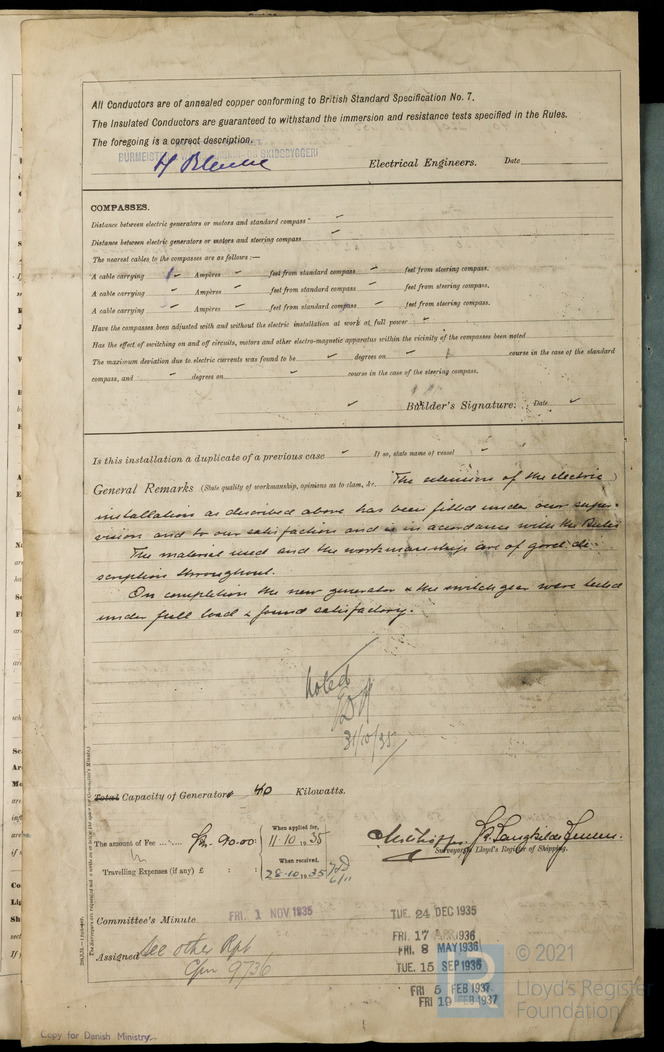 All Conductors are of annealed copper conforming to British Standard Specification No. 7.
The Insulated Conductors are guaranteed to withstand the immersion and resistance tests specified in the Rules.
The foregoing is a correct description.
BURMEISTER SKIBSBYGGERI
Electrical Engineers. Date
COMPASSES.
Distance between electric generators or motors and standard compass
Distance between electric generators or motors and steering compass
The nearest cables to the compasses are as follows:—
A cable carrying Ampères feet from standard compass feet from steering compass.
A cable carrying Ampères feet from standard compass feet from steering compass.
A cable carrying Ampères feet from standard compass feet from steering compass.
Have the compasses been adjusted with and without the electric installation at work at full power
Has the effect of switching on and off circuits, motors and other electro-magnetic apparatus within the vicinity of the compasses been noted
The maximum deviation due to electric currents was found to be degrees on course in the case of the standard
compass, and degrees on course in the case of the steering compass.
Builder's Signature. Date
Is this installation a duplicate of a previous case If so, state name of vessel
General Remarks (State quality of workmanship, opinions as to class, &c. The extension of the electric
installation as described above has been fitted under our super-
vision and to our satisfaction and is in accordance with the Rules
The material used and the workmanship are of good de-
scription throughout.
On completion the new generator & the switchgear were tested
under full load & found satisfactory.
Noted
31/10/35
Total Capacity of Generators 40 Kilowatts.
The amount of Fee Kr. 90.00 When applied for, 11.10.1935
Travelling Expenses (if any) £ : : When received, 28.10.1935
Surveyors to Lloyd's Register of Shipping.
Committee's Minute FRI. 1 NOV 1935
TUE. 24 DEC 1935
FRI. 17 1936
FRI. 8 MAY 1936
TUE. 15 SEP 1936
FRI 5 FEB 1937
FRI 19 FEB 1937
Assigned See other Rpt
Cpn 9736
© 2021
Lloyd's Register
Foundation
Copy for Danish Ministry.